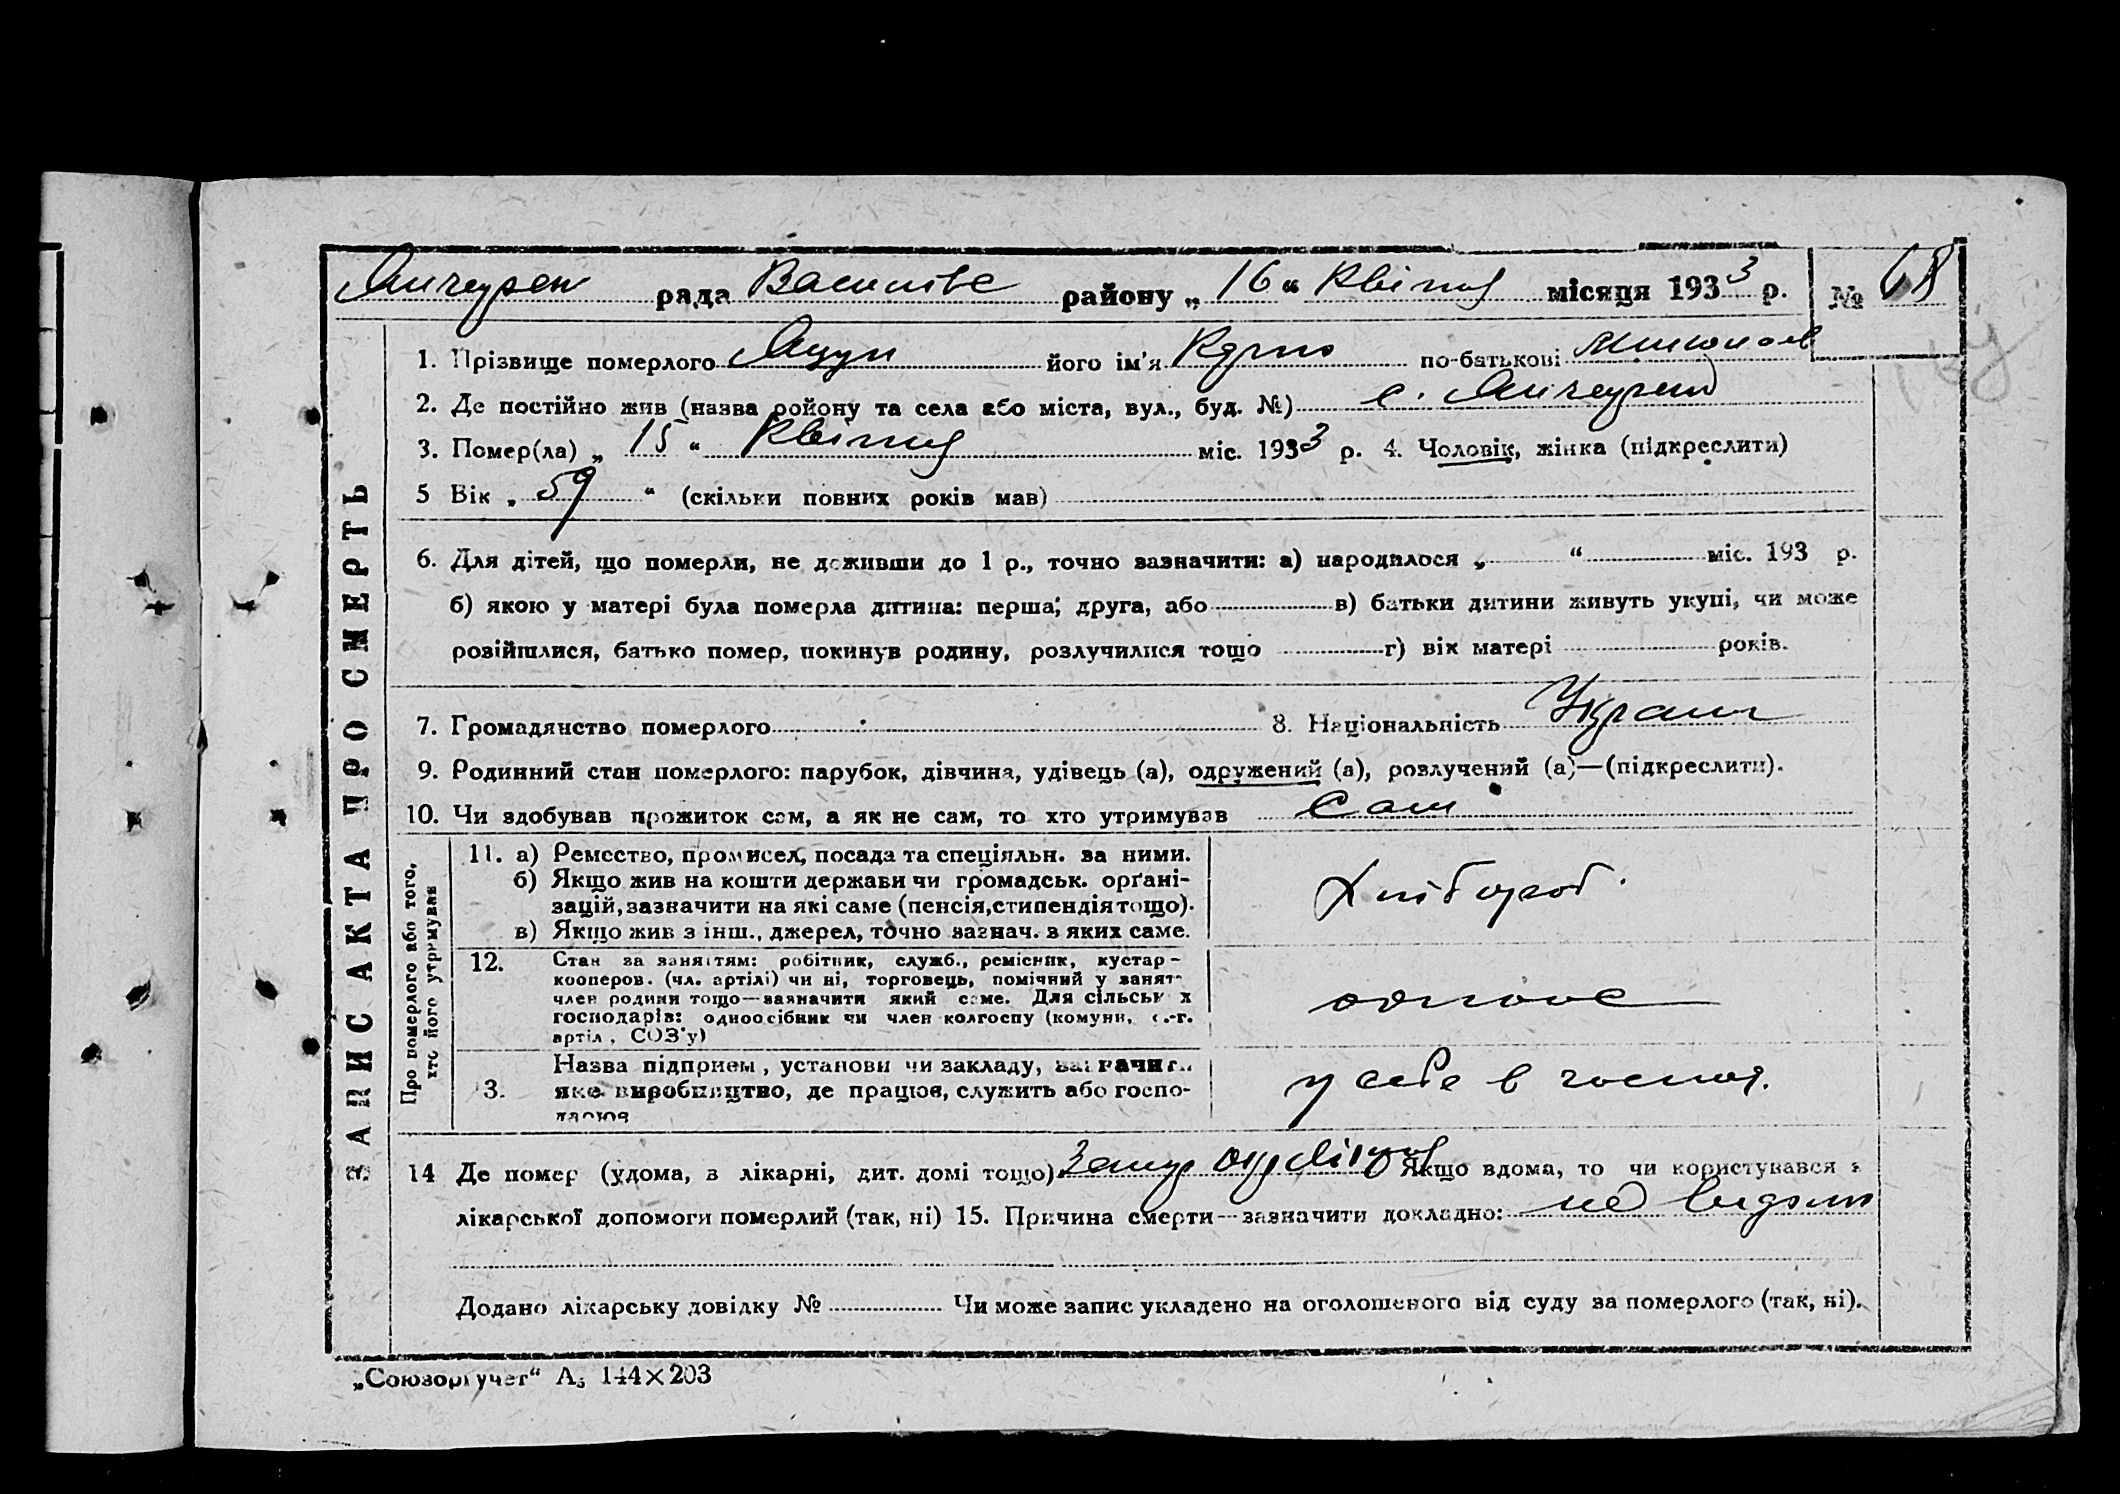 рада Васильківс району „ 16 “ Квітня місяця 1933 р. № 68
1. Прізвище померлого Яцун його ім'я по-батькові
2. Де постійно жив (назва ройону та села або міста, вул., буд. №) с.
3. Помер(ла) „ 15 “ Квітня міс. 1933 р. 4. Чоловік, жінка (підкреслити)
5 Вік „ 59 “ (скільки повних років мав)
6. Для дітей, що померли, не доживши до 1 р., точно зазначити: а) народилося „ “ міс. 193 р.
б) якою у матері була померла дитина: перша, друга, або в) батьки дитини живуть укупі, чи може
розійшлися, батько помер, покинув родину, розлучилися тощо г) вік матері років.
7. Громадянство померлого 8. Національність Украін
9. Родинний стан померлого: парубок, дівчина, удівець (а), одружений (а), розлучений (а)—(підкреслити).
10. Чи здобував прожиток сам, а як не сам, то хто утримував Сам
ЗАПИС АКТА ПРО СМЕРТЬ
Про померлого або того,
хто його утримував
11. а) Ремество, промисел, посада та спеціяльн. за ними.
б) Якщо жив на кошти держави чи громадськ. орґані-
зацій, зазначити на які саме (пенсія, стипендія тощо).
в) Якщо жив з інш., джерел, точно зазнач. з яких саме.
Хлібороб.
12. Стан за заняттям: робітник, служб., ремісник, кустар-
кооперов. (чл. артілі) чи ні, торговець, помічний у занят
член родини тощо—зазначити який саме. Для сільськ х
господарів: одноосібник чи член колгоспу (комуни, с.-г.
артіл, СОЗ'у)
одноос
3. Назва підприєм, установи чи закладу, зазначит
яке виробництво, де працюв, служить або госпо-
дарюв
у себе в господ.
14 Де помер (удома, в лікарні, дит. домі тощо) Якщо вдома, то чи користувався з
лікарської допомоги померлий (так, ні) 15. Причина смерти—зазначити докладно: не відомо
Додано лікарську довідку № Чи може запис укладено на оголошеного від суду за померлого (так, ні).
„Союзоргучет“ А₅ 144×203